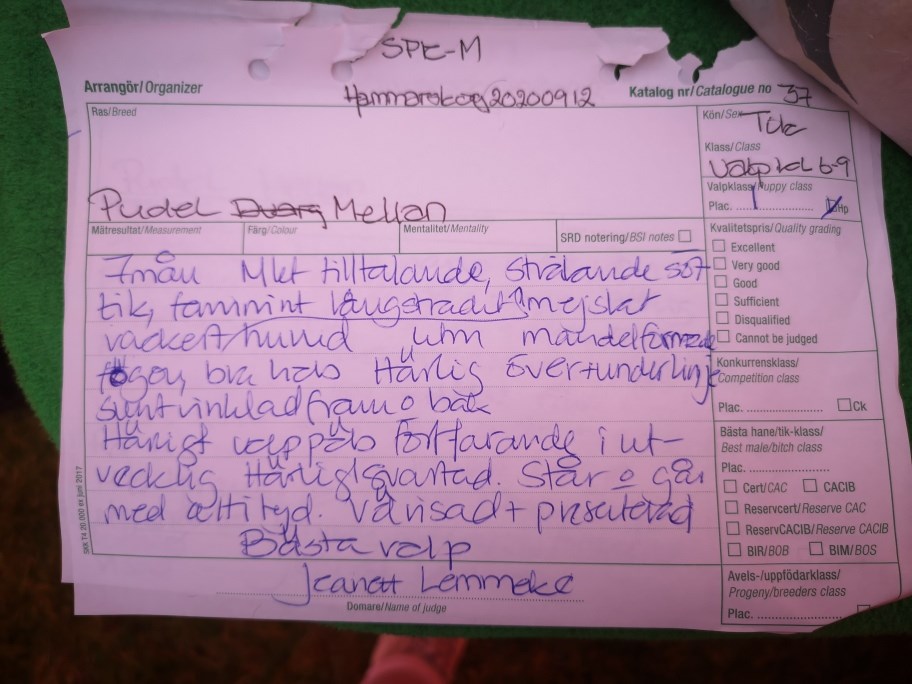 SPK-M
Arrangör/Organizer
Hammarskog 20200912
Katalog nr/Catalogue no 37
Ras/Breed
Kön/Sex Tik
Klass/Class
Valpkl 6-9
Pudel Dvärg Mellan
Valpklass/Puppy class
Plac. 1 Hp
Mätresultat/Measurement
Färg/Colour
Mentalitet/Mentality
SRD notering/BSI notes
Kvalitetspris/Quality grading
Excellent
Very good
Good
Sufficient
Disqualified
Cannot be judged
7mån Mkt tilltalande, strålande söt
tik, feminint långsträckt mejslat
vackert huvud utm mandelformade
ögon, bra hals Härlig över+underlinje
sunt vinklad fram o bak
Härligt valppäls fortfarande i ut-
veckling Härlig svansad. Står o går
med attityd. Välvisad + presenterad
Bästa valp
Jeanett Lemmeke
Domare/Name of judge
Konkurrensklass/
Competition class
Plac. Ck
Bästa hane/tik-klass/
Best male/bitch class
Plac.
Cert/CAC
CACIB
Reservcert/Reserve CAC
ReservCACIB/Reserve CACIB
BIR/BOB
BIM/BOS
Avels-/uppfödarklass/
Progeny/breeders class
Plac.
SKK T4 20.000 ex juni 2017